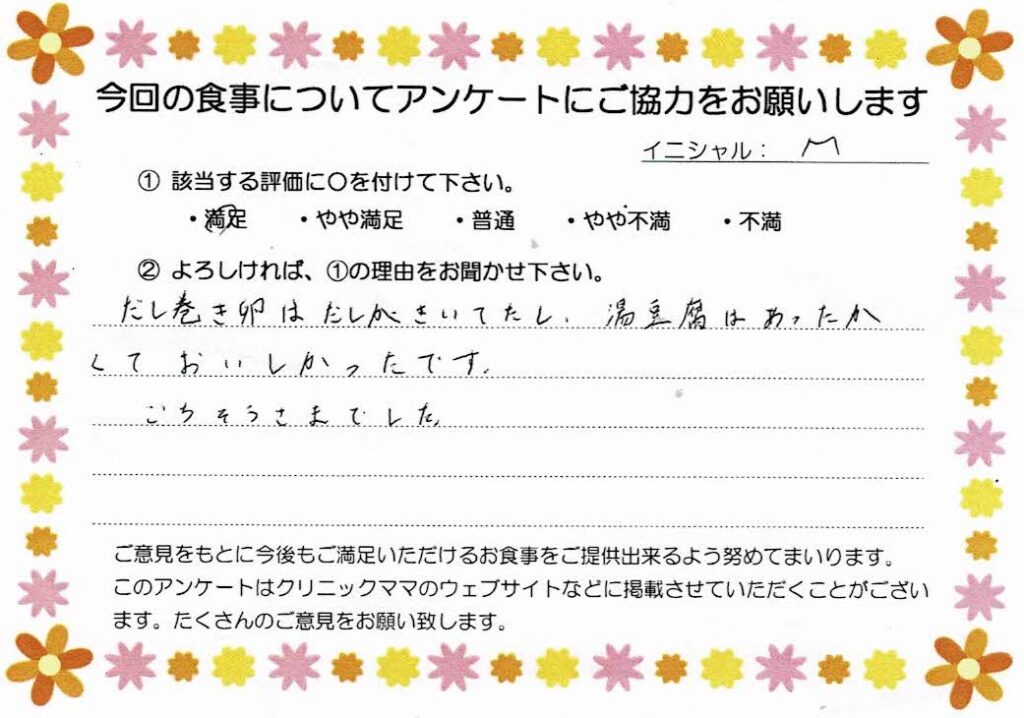 今回の食事についてアンケートにご協力をお願いします
イニシャル： M
① 該当する評価に〇を付けて下さい。
・満足 ・やや満足 ・普通 ・やや不満 ・不満
② よろしければ、①の理由をお聞かせ下さい。
だし巻き卵はだしがきいてたし、湯豆腐はあったか
くて おいしかったです。
ごちそうさまでした。
ご意見をもとに今後もご満足いただけるお食事をご提供出来るよう努めてまいります。
このアンケートはクリニックママのウェブサイトなどに掲載させていただくことがござい
ます。たくさんのご意見をお願い致します。